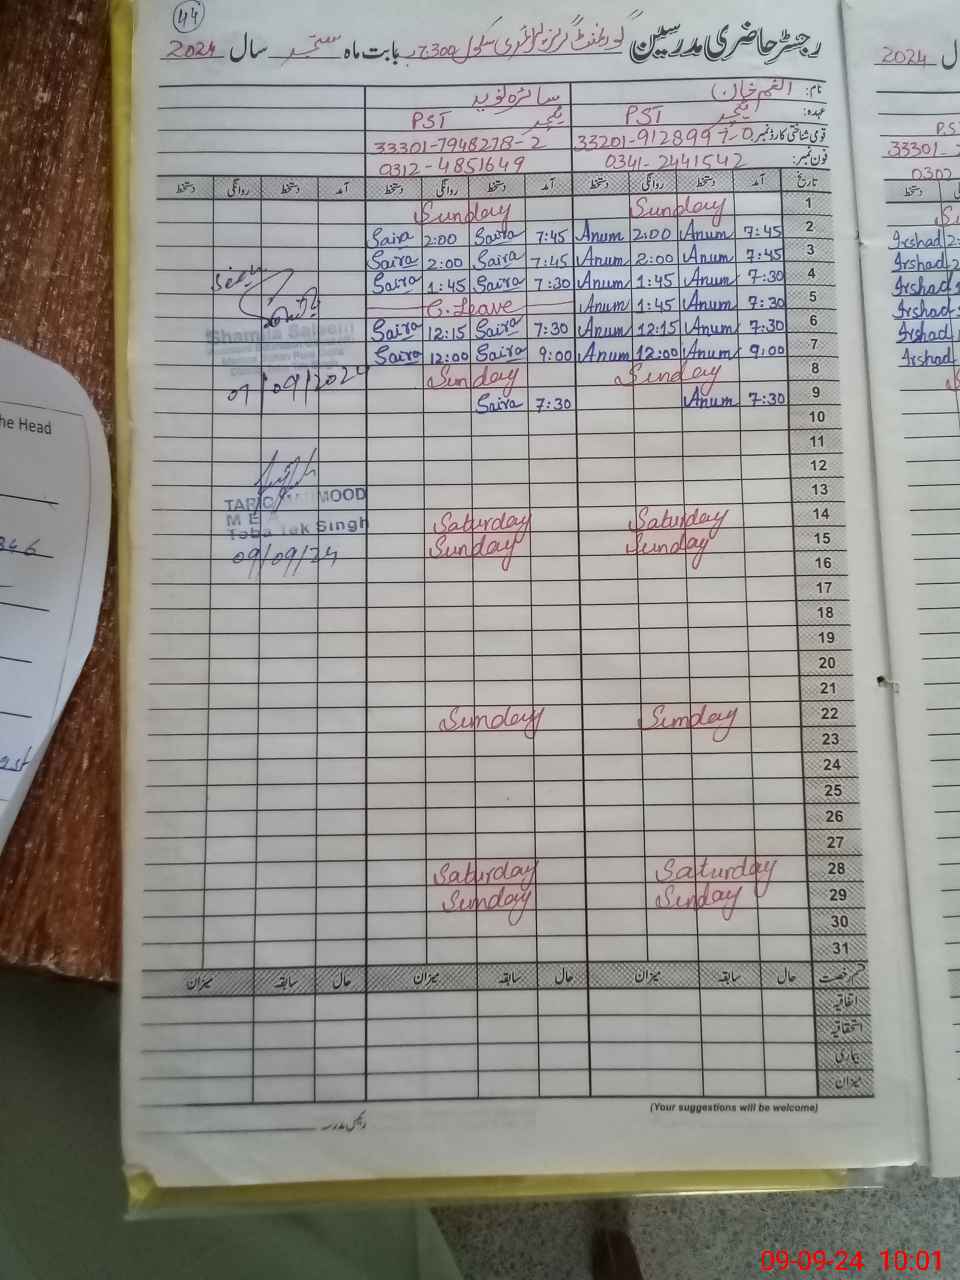 44
رجسٹر حاضری مدرسین گورنمنٹ گرلز پرائمری سکول 300 بابت ماہ ستمبر سال 2024
نام: انعم خان سائرہ نوید
عہدہ: ٹیچر PST ٹیچر PST
قومی شناختی کارڈ نمبر: 33201-9128997-0 33301-7948278-2
فون نمبر: 0341-2441542 0312-4851649
تاریخ آمد دستخط روانگی دستخط آمد دستخط روانگی دستخط آمد دستخط روانگی دستخط
1 Sunday Sunday
2 7:45 Anum 2:00 Anum 7:45 Saira 2:00 Saira
3 7:45 Anum 2:00 Anum 7:45 Saira 2:00 Saira
4 7:30 Anum 1:45 Anum 7:30 Saira 1:45 Saira
5 7:30 Anum 1:45 Anum C.Leave
6 7:30 Anum 12:15 Anum 7:30 Saira 12:15 Saira
7 9:00 Anum 12:00 Anum 9:00 Saira 12:00 Saira
8 Sunday Sunday
9 7:30 Anum 7:30 Saira
10
11
12
13
14 Saturday Saturday
15 Sunday Sunday
16
17
18
19
20
21
22 Sunday Sunday
23
24
25
26
27
28 Saturday Saturday
29 Sunday Sunday
30
31
Shamila Saleem
07/09/2024
TARIQ MEHMOOD
MEA
Toba Tek Singh
09/09/24
قسم رخصت حال سابقہ میزان حال سابقہ میزان حال سابقہ میزان
اتفاقیہ
استحقاقیہ
بیماری
میزان
(Your suggestions will be welcome)
رئیس مدرسہ
2024
ل
PS
33301-
0302
دستخط
Irshad 2:
Irshad 2
Irshad
Irshad
Irshad
Irshad
he Head
09-09-24 10:01